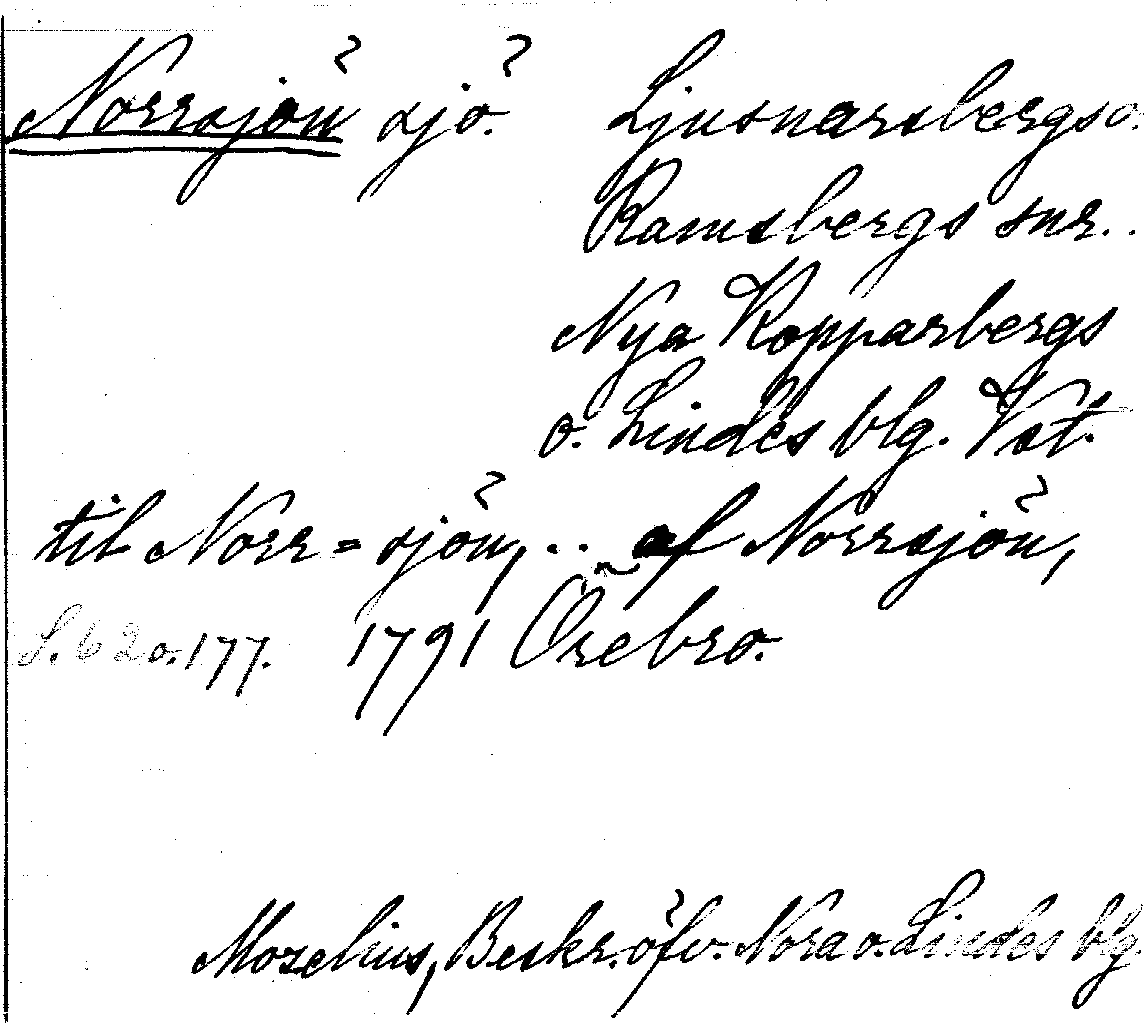 Norrsjön sjö. Ljusnarsbergs o.
Ramsbergs snr..
Nya Kopparbergs
o. Lindes blg. Vst.
til Norr=sjön, .. af Norrsjön,
S. 62 o. 177. 1791 Örebro.
Mozelius, Beskr. öfv. Nora o. Lindes blg.